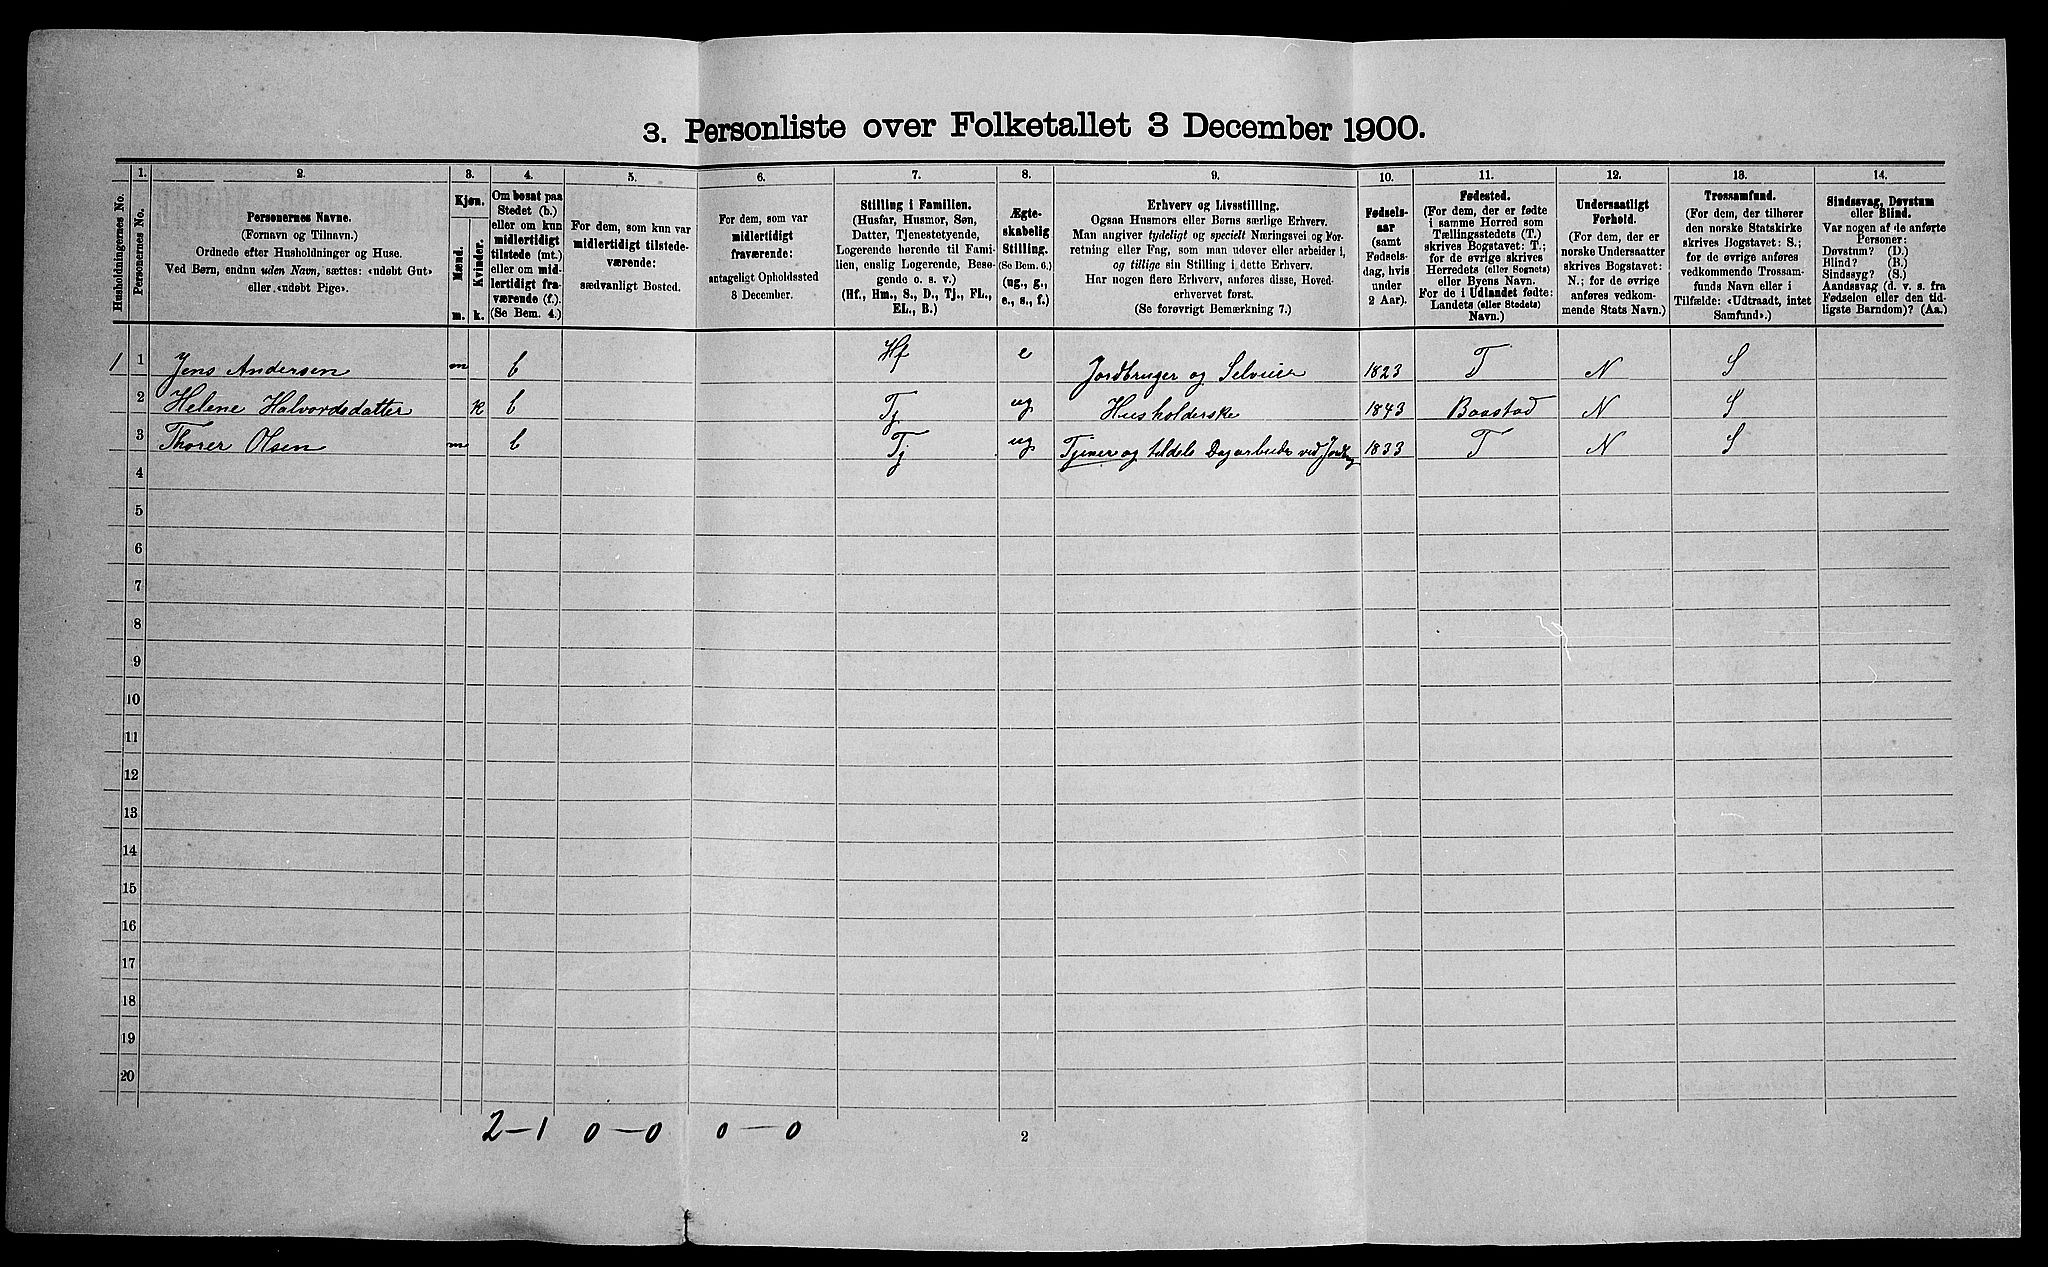 3. Personliste over Folketallet 3 December 1900.
Husholdningernes No.
1.
Personernes No.
2.
Personernes Navne.
(Fornavn og Tilnavn.)
Ordnede efter Husholdninger og Huse.
Ved Børn, endnu uden Navn, sættes: «udøbt Gut»
eller «udøbt Pige».
3.
Kjøn.
Mænd.
Kvinder.
m. k.
4.
Om bosat paa
Stedet (b.)
eller om kun
midlertidigt
tilstede (mt.)
eller om mid-
lertidigt fra-
værende (f.).
(Se Bem. 4.)
5.
For dem, som kun var
midlertidigt tilstede-
værende:
sædvanligt Bosted.
6.
For dem, som var
midlertidigt
fraværende:
antageligt Opholdssted
3 December.
7.
Stilling i Familien.
(Husfar, Husmor, Søn,
Datter, Tjenestetyende,
Logerende hørende til Fami-
lien, enslig Logerende, Besø-
gende o. s. v.)
(Hf., Hm., S., D., Tj., FL.,
EL., B.)
8.
Ægte-
skabelig
Stilling.
(Se Bem. 6.)
(ug., g.,
e., s., f.)
9.
Erhverv og Livsstilling.
Ogsaa Husmors eller Børns særlige Erhverv.
Man angiver tydeligt og specielt Næringsvei og For-
retning eller Fag, som man udøver eller arbeider i,
og tillige sin Stilling i dette Erhverv.
Har nogen flere Erhverv, anføres disse, Hoved-
erhvervet først.
(Se forøvrigt Bemærkning 7.)
10.
Fødsels-
aar
(samt
Fødsels-
dag, hvis
under
2 Aar).
11.
Fødested.
(For dem, der er fødte
i samme Herred som
Tællingsstedets (T.)
skrives Bogstavet: T.;
for de øvrige skrives
Herredets (eller Sognets)
eller Byens Navn.
For de i Udlandet fødte:
Landets (eller Stedets)
Navn.)
12.
Undersaatligt
Forhold.
(For dem, der er
norske Undersaatter
skrives Bogstavet:
N.; for de øvrige
anføres vedkom-
mende Stats Navn.)
13.
Trossamfund.
(For dem, der tilhører
den norske Statskirke
skrives Bogstavet: S.;
for de øvrige anføres
vedkommende Trossam-
funds Navn eller i
Tilfælde: «Udtraadt, intet
Samfund».)
14.
Sindssvag, Døvstum
eller Blind.
Var nogen af de anførte
Personer:
Døvstum? (D.)
Blind? (B.)
Sindssyg? (S.)
Aandssvag (d. v. s. fra
Fødselen eller den tid-
ligste Barndom)? (Aa.)
1 1 Jens Andersen m b Hf e Jordbruger og Selveier 1823 T N S
2 Helene Halvordsdatter k b Tj ug Husholderske 1843 Baastad N S
3 Thorer Olsen m b Tj ug Tjener og tildels Dagarbeider ved Jordbrug 1833 T N S
4
5
6
7
8
9
10
11
12
13
14
15
16
17
18
19
20
2-1 0-0 0-0
2